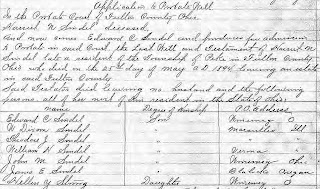 Application to Probate Will
To the Probate Court of Fulton County Ohio
Harriet N. Sindel Deceased
And now comes Edward C Sindel and produces for admission
to Probate in said Court the Last Will and Testament of Harriet N
Sindel late a resident of the Township of Pike in Fulton County
Ohio who died on the 25th day of May A.D. 1894 leaving an estate
in said Fulton County
Said Testator died leaving no husband and the following
persons all her next of kin resident in the State of Ohio
name Degree of Kinship P.O. Address
Edward C Sindel Son O
W Dixon Sindel " Ill
Theodore J Sindel "
William H Sindel "
John M Sindel "
James E Sindel "
Daughter O